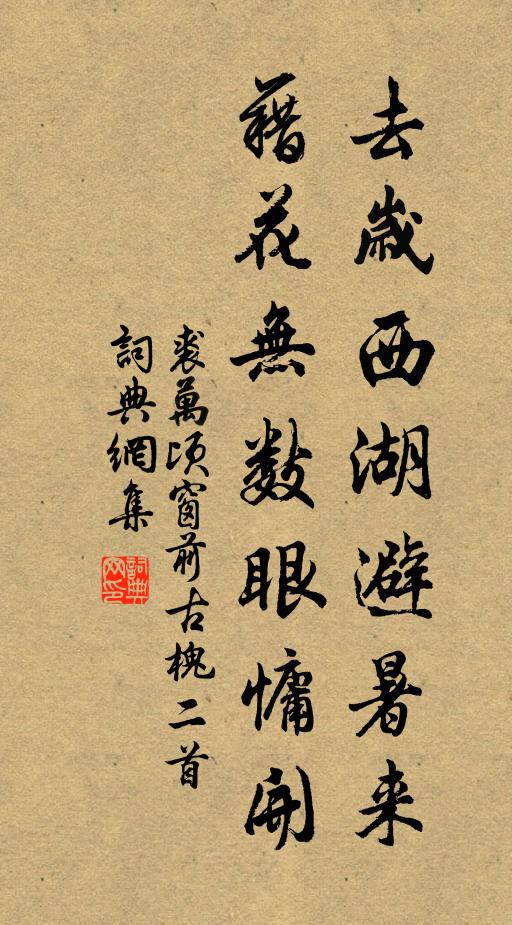 去歲西湖避暑来
藕花無數眼慵開
裘萬頃窗前古槐二首
詞典網集
詞典网印